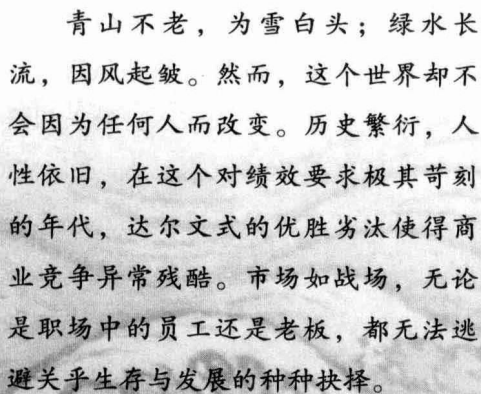 青山不老，为雪白头；绿水长
流，因风起皱。然而，这个世界却不
会因为任何人而改变。历史繁衍，人
性依旧，在这个对绩效要求极其苛刻
的年代，达尔文式的优胜劣汰使得商
业竞争异常残酷。市场如战场，无论
是职场中的员工还是老板，都无法逃
避关乎生存与发展的种种抉择。